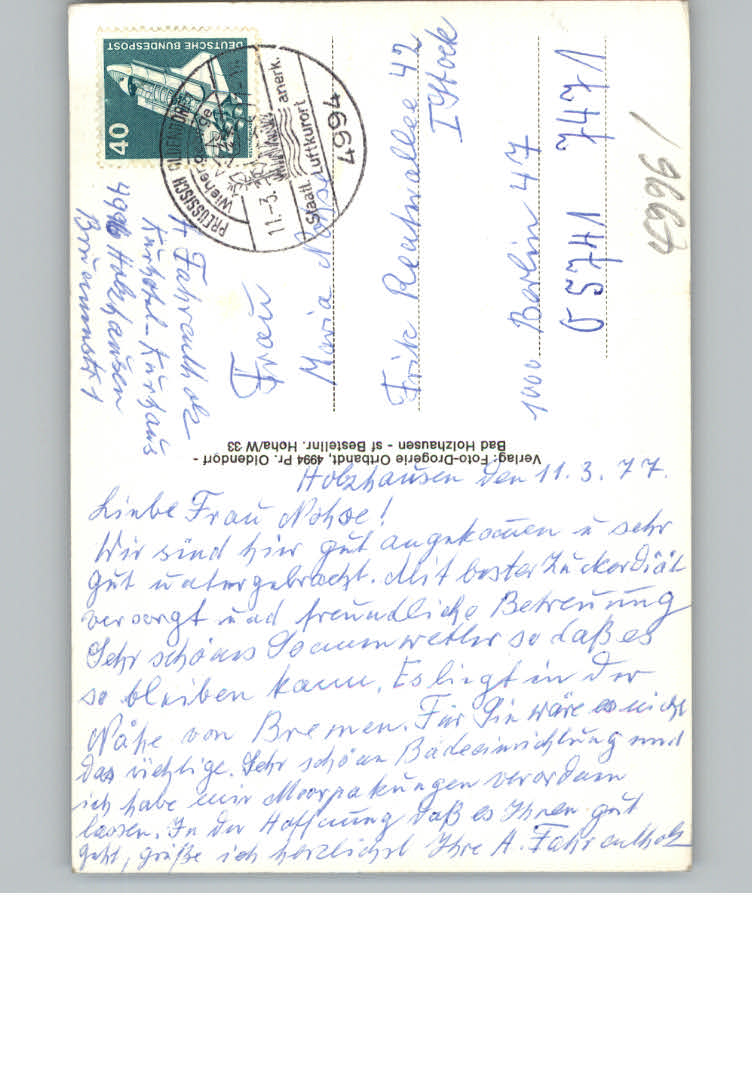 DEUTSCHE BUNDESPOST
40
PREUSSISCH OLDENDORF
11.-3.
Staatl. anerk.
Luftkurort
4994
A Fahrentholz
Kurhotel-Kurhaus
4996 Holzhausen
Brunnenstr 1
Frau
Maria Nohse
Fritz Reuterallee 42
I Stock
1000 Berlin 47
05741 7471
4996/
Verlag: Foto-Drogerie Ortbandt, 4994 Pr. Oldendorf -
Bad Holzhausen - sf Bestellnr. Hoha/W 33
Holzhausen den 11.3.77.
Liebe Frau Nohse!
Wir sind hier gut angekomen u sehr
gut untergebracht. Mit bester Zuckerdiät
versorgt und freundliche Betreuung
Sehr schönes Sonnenwetter so daß es
so bleiben kann. Es liegt in der
Nähe von Bremen. Für Sie wäre es nicht
das richtige. Sehr schöne Badeeinrichtung und
ich habe mir Moorpakungen verordnen
lassen. In der Hoffnung daß es Ihnen gut
geht, grüße ich herzlichst Ihre A. Fahrentholz